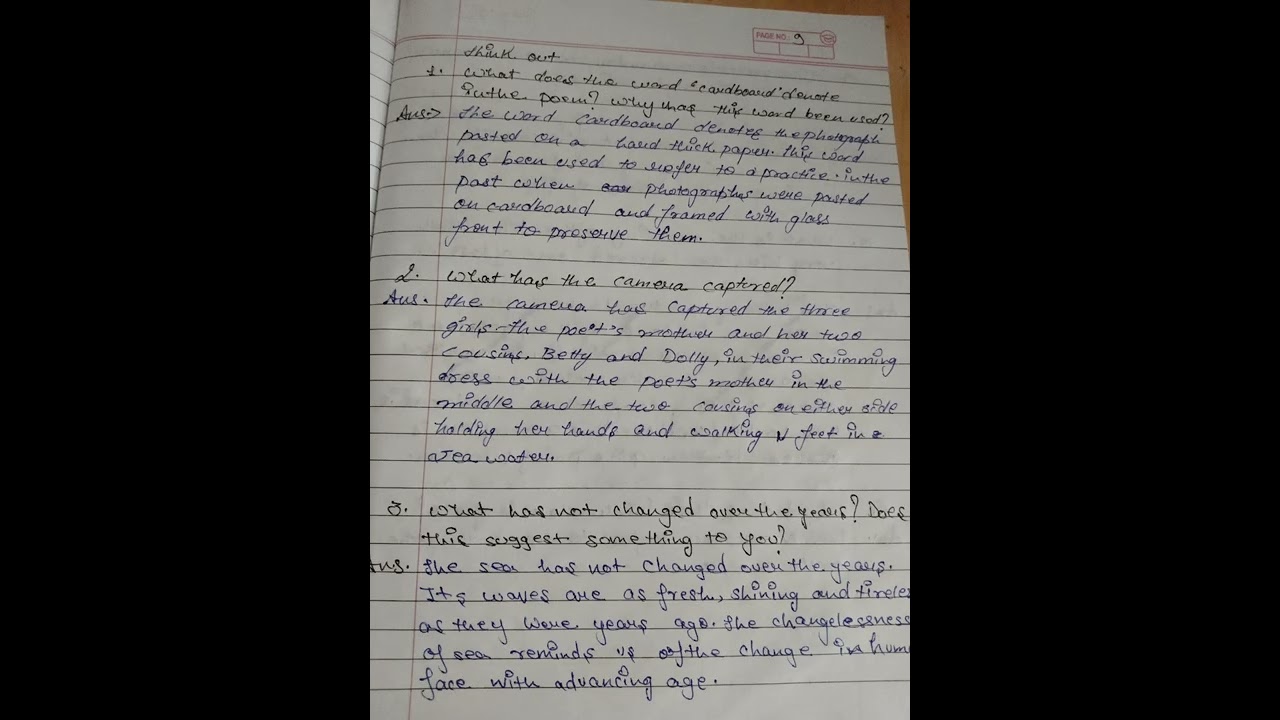 PAGE NO.: 9
think out
1. What does the word 'cardboard' denote
in the poem? Why has this word been used?
Ans:→ the word cardboard denotes the photograph
pasted on a hard thick paper. this word
has been used to refer to a practice. in the
past when photographs were pasted
on cardboard and framed with glass
front to preserve them.
2. What has the camera captured?
Ans. the camera has captured the three
girls - the poet's mother and her two
cousins. Betty and Dolly, in their swimming
dress with the poet's mother in the
middle and the two cousins on either side
holding her hands and walking feet in
sea water.
3. What has not changed over the years? Does
this suggest something to you?
Ans. the sea has not changed over the years.
Its waves are as fresh, shining and tireles
as they were years ago. the changelessness
of sea reminds us of the change in hum
face with advancing age.